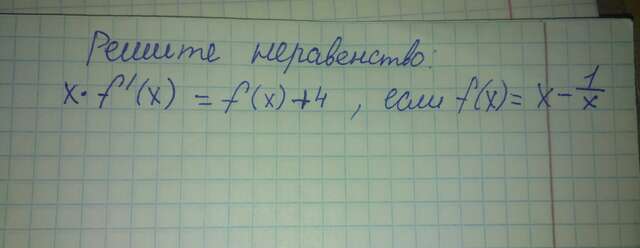 Решите неравенство:
x · f'(x) = f(x)+4 , если f(x)= x - 1/x